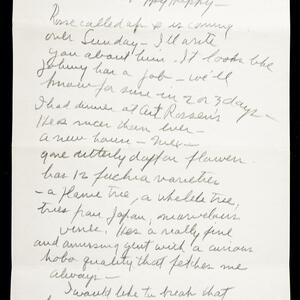 Rose called up & is coming
over Sunday – I'll write
you about him. It looks like
Johnny has a job – we'll
know for sure in 2 or 3 days –
I had dinner at Art Rosser's
He's nicer than ever –
a new house –
gone utterly daft on flowers.
has 12 fuchia varieties
– a flame tree, a whelele tree,
tries from Japan, marvelous
vines. He's a really fine
and amusing gent with a curious
hobo quality that fetches me
always –
I would like to break that